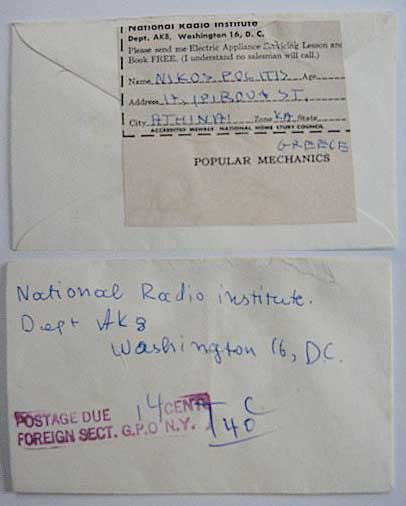 National Radio Institute
Dept. AK8, Washington 16, D. C.
Please send me Electric Appliance Servicing Lesson and
Book FREE. (I understand no salesman will call.)
Name NIKOS POLITIS Age
Address ST.
City ATHINAI Zone KA State
ACCREDITED MEMBER NATIONAL HOME STUDY COUNCIL
GREECE
POPULAR MECHANICS
National Radio institute.
Dept AK8
Washington 16, D.C.
POSTAGE DUE 14 CENTS
FOREIGN SECT. G.P.O N.Y. T 40 C